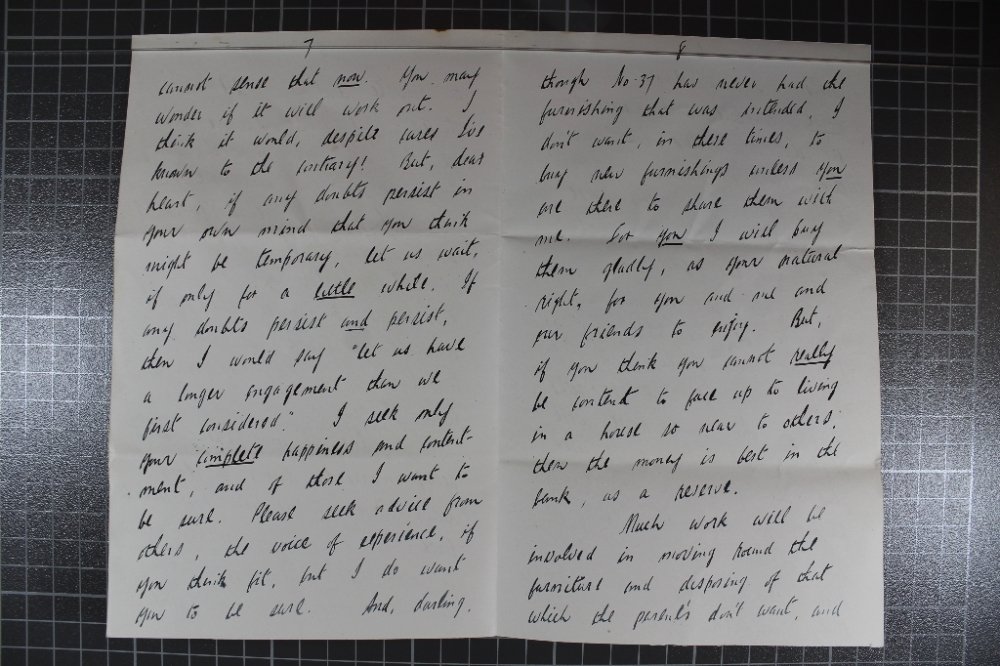 7
cannot sense that now. You may
wonder if it will work out. I
think it would, despite cases I've
known to the contrary! But, dear
heart, if any doubts persist in
your own mind that you think
might be temporary, let us wait,
if only for a little while. If
any doubts persist and persist,
then I would say "let us have
a longer engagement than we
first considered". I seek only
your complete happiness and content-
ment, and of those I want to
be sure. Please seek advice from
others, the voice of experience, if
you think fit, but I do want
you to be sure. And, darling,
8
though No 37 has never had the
furnishing that was intended, I
don't want, in these times, to
buy new furnishings unless you
are there to share them with
me. For you I will buy
them gladly, as your natural
right, for you and me and
our friends to enjoy. But,
if you think you cannot really
be content to face up to living
in a house so near to others,
then the money is best in the
bank, as a reserve.
Much work will be
involved in moving round the
furniture and disposing of that
which the parents don't want, and